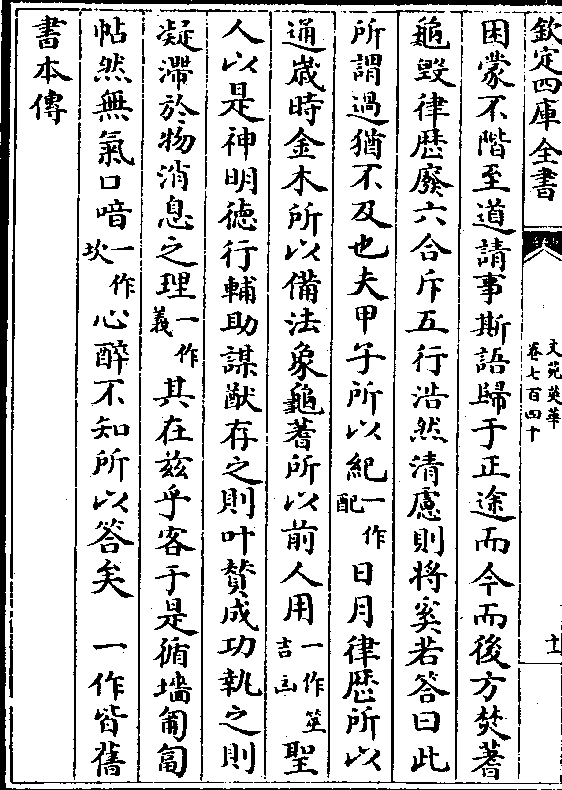 欽定四庫全書
文苑英華
卷七百四十
十一
困蒙不階至道請事斯語歸于正途而今而後方焚蓍
龜毁律歴廢六合斥五行浩然清慮則將奚若答曰此
所謂過猶不及也夫甲子所以紀一作配日月律歴所以
通嵗時金木所以備法象龜蓍所以前人用一作筮吉凶聖
人以是神明徳行輔助謀猷存之則叶賛成功執之則
凝滯於物消息之理一作義其在兹乎客于是循墻匍匐
帖然無氣口喑一作坎心醉不知所以答矣　一作皆舊
書本傳